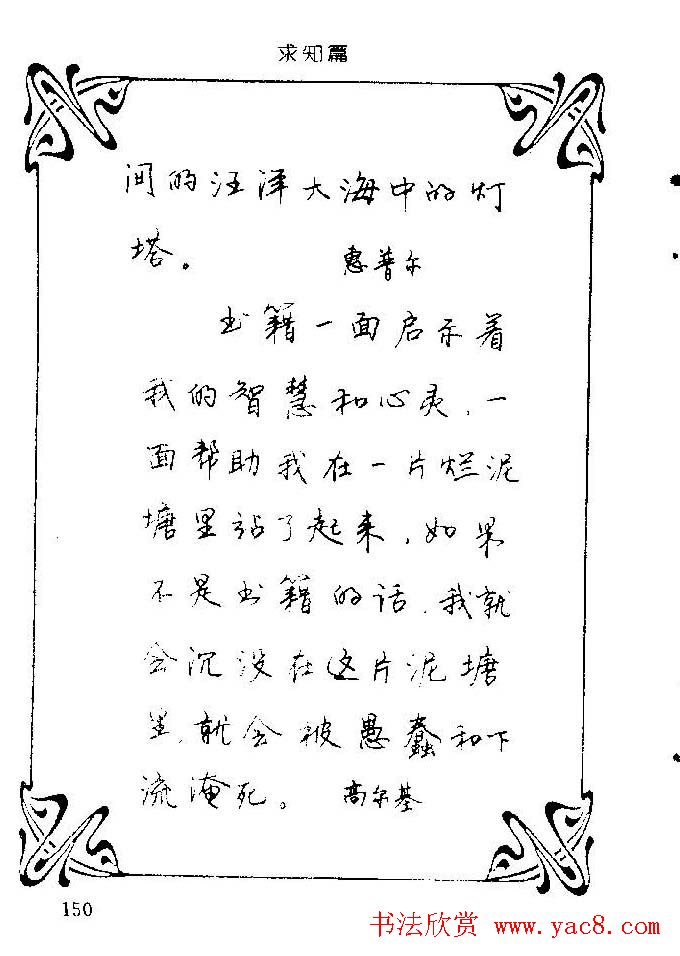 求知篇
间的汪洋大海中的灯
塔。 惠普尔
书籍一面启示着
我的智慧和心灵，一
面帮助我在一片烂泥
塘里站了起来，如果
不是书籍的话，我就
会沉没在这片泥塘
里，就会被愚蠢和下
流淹死。 高尔基
150
书法欣赏 www.yac8.com